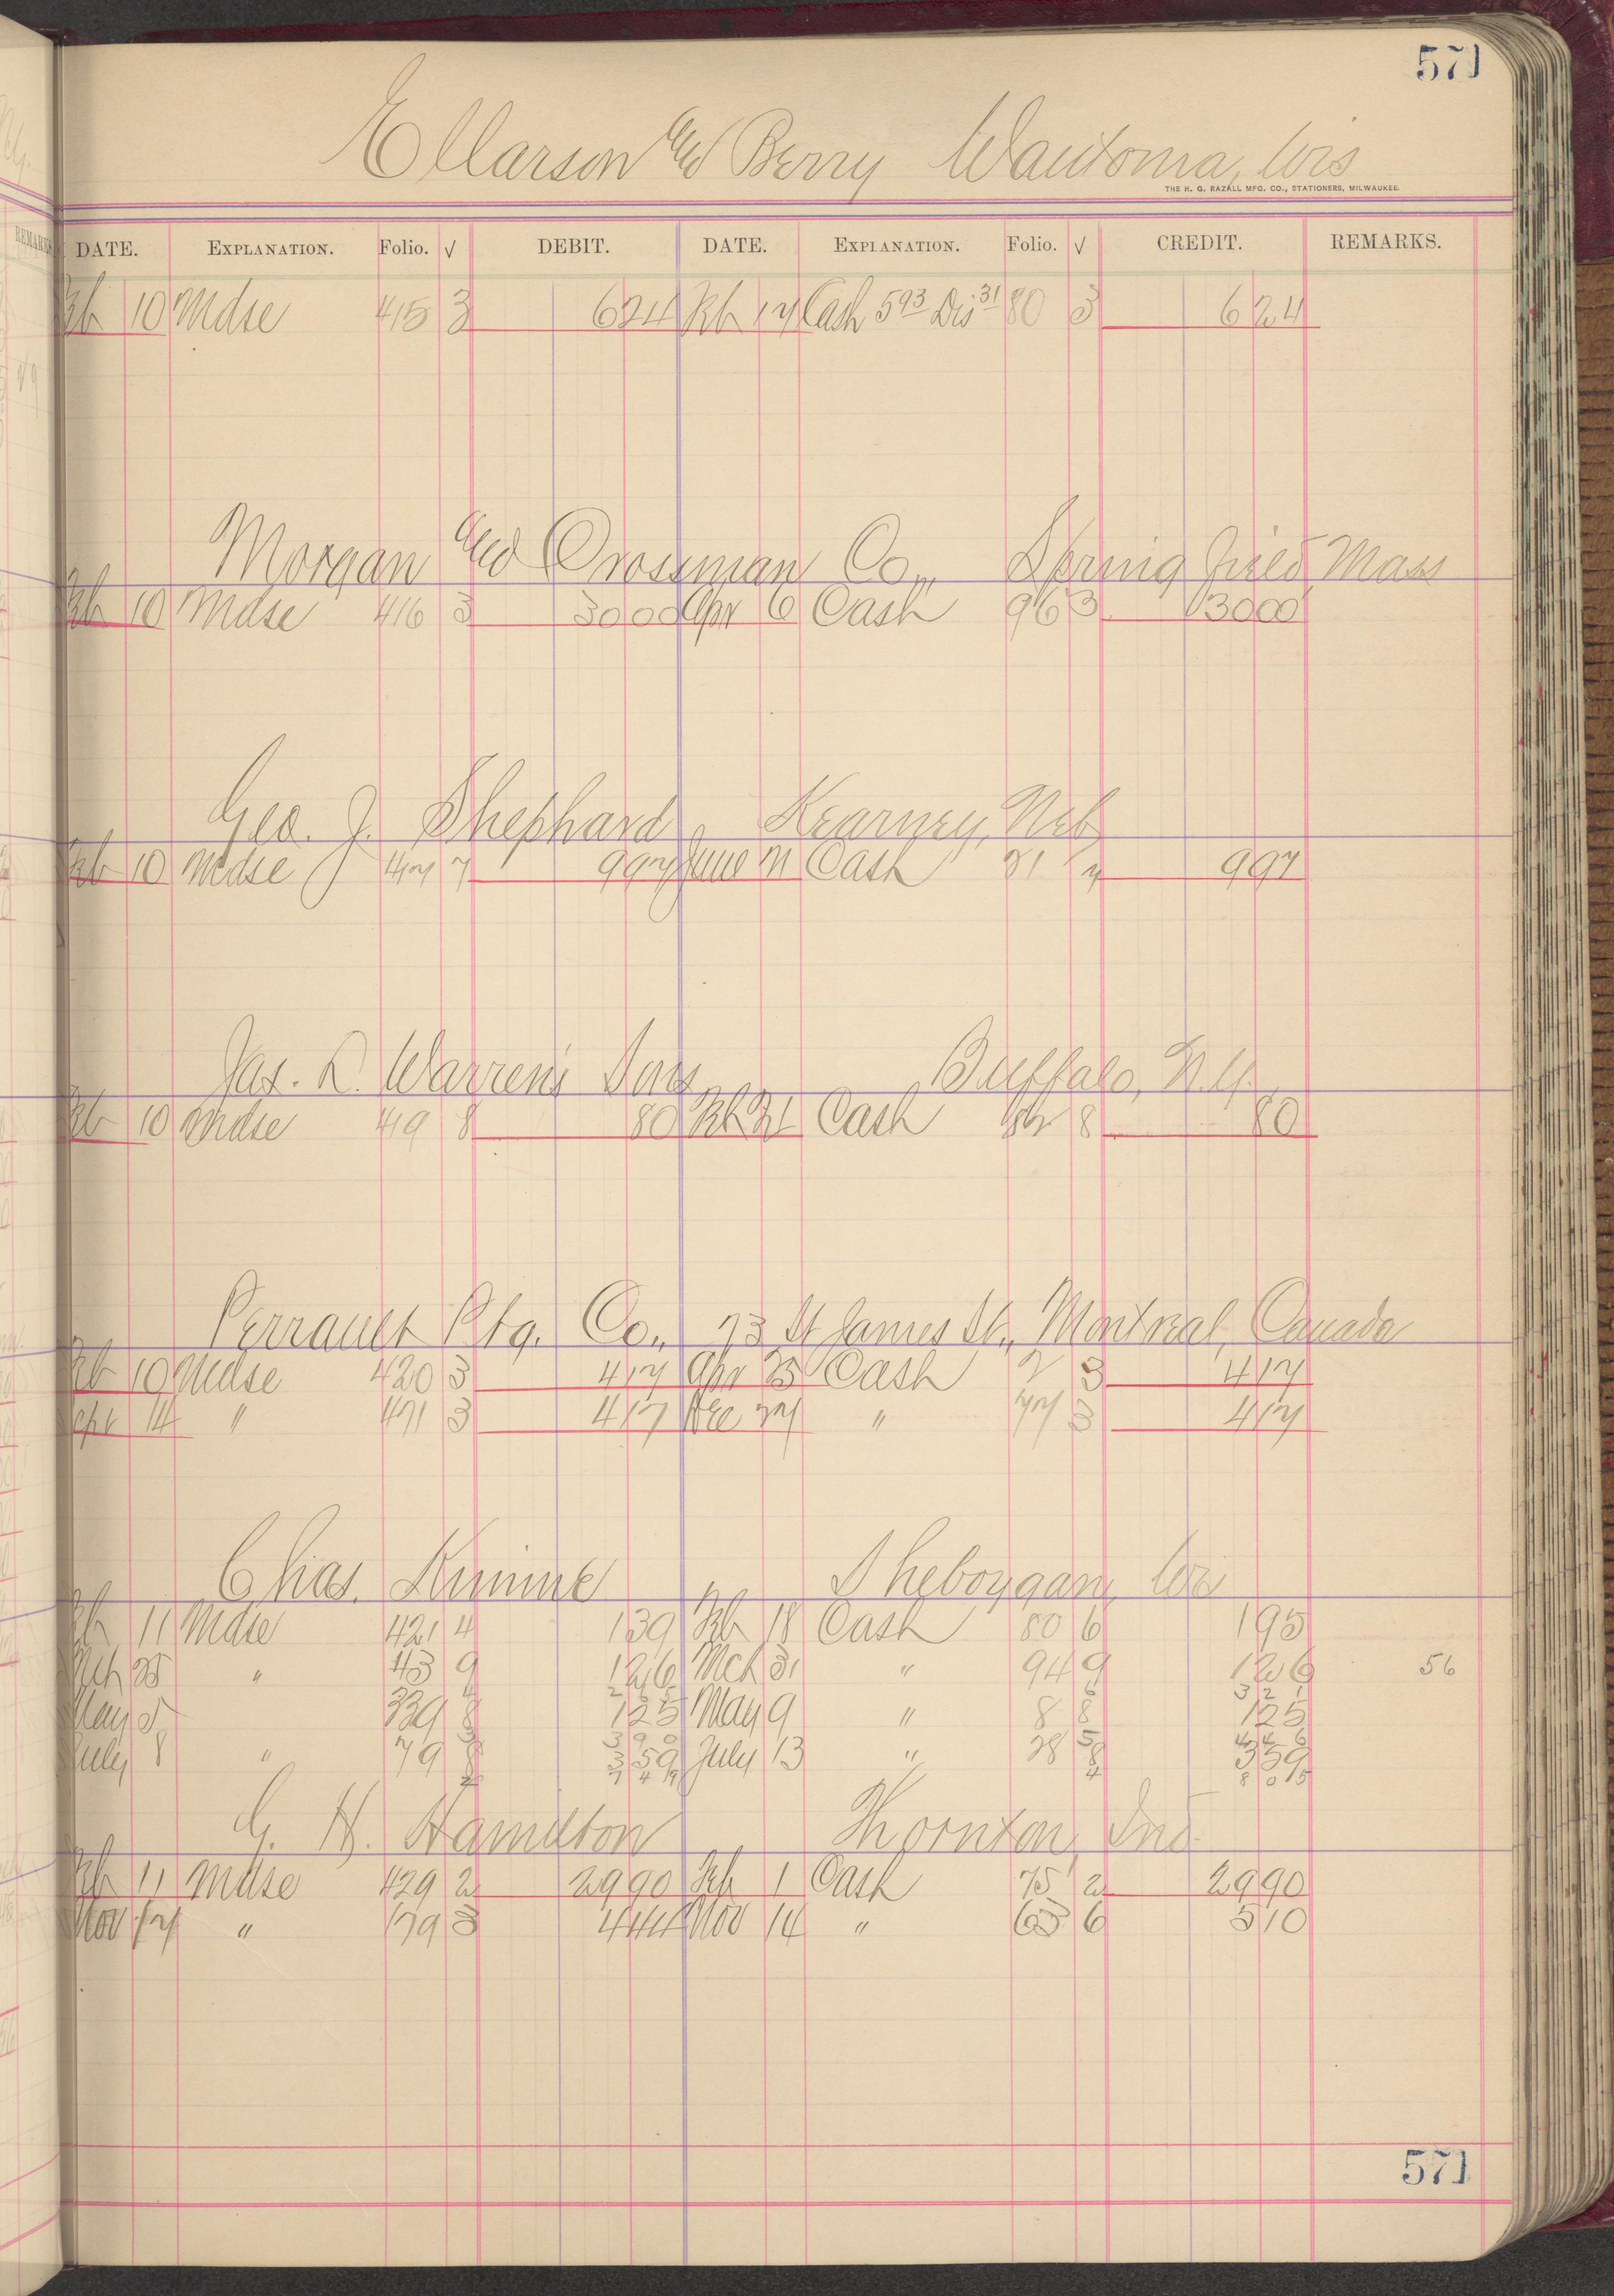 571
Ellarson and Berry Wautoma, Wis
THE H. G. RAZALL MFG. CO., STATIONERS, MILWAUKEE.
DATE. EXPLANATION. Folio. √ DEBIT. DATE. EXPLANATION. Folio. √ CREDIT. REMARKS.
Feb 10 Mdse 415 3 624 Feb 17 Cash 593 Dis 31 80 3 624
Morgan and Crossman Co., Springfield Mass
Feb 10 Mdse 416 3 3000 Apr 6 Cash 96 3 3000
Geo. J. Shephard, Kearney, Neb
Feb 10 Mdse 417 7 997 June Cash 21 7 997
Jas. D. Warren's Sons Buffalo, N.Y.
Feb 10 Mdse 419 8 80 Feb Cash 82 8 80
Perrault Ptg. Co., 73 St James St., Montreal, Canada
Feb 10 Mdse 420 3 417 Apr 25 Cash 2 3 417
Sept 14 " 471 3 417 Dec 27 " 77 3 417
Chas. Kimme Sheboygan, Wis
Feb 11 Mdse 421 4 139 Feb 18 Cash 80 6 195
Mch 25 " 43 9 126 Mch 31 " 94 9 126 56
May 5 339 8 125 May 9 " 8 8 125
July 8 " 79 8 359 July 13 " 28 8 359
G. H. Hamilton Thornton, Ind.
Feb 11 Mdse 429 2 2990 Feb 1 Cash 75 2 2990
Nov 17 " 179 3 444 Nov 14 " 65 6 510
571